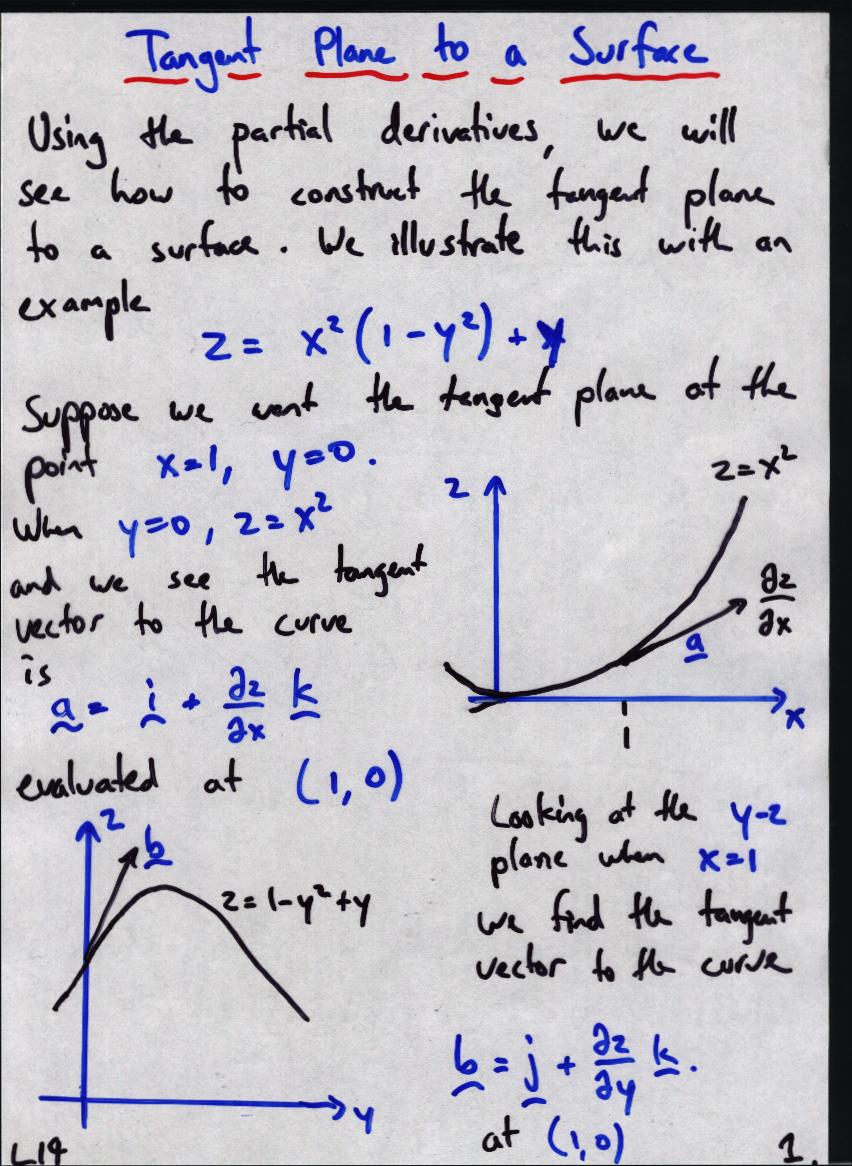 Tangent Plane to a Surface
Using the partial derivatives, we will
see how to construct the tangent plane
to a surface. We illustrate this with an
example
z = x²(1-y²) + y
Suppose we want the tangent plane at the
point x=1, y=0.
When y=0, z=x²
and we see the tangent
vector to the curve
is
a = i + ∂z/∂x k
evaluated at (1,0)
z
z=x²
∂z/∂x
a
x
1
z
b
z=1-y²+y
y
Looking at the y-z
plane when x=1
we find the tangent
vector to the curve
b = j + ∂z/∂y k.
at (1,0)
L14
1.